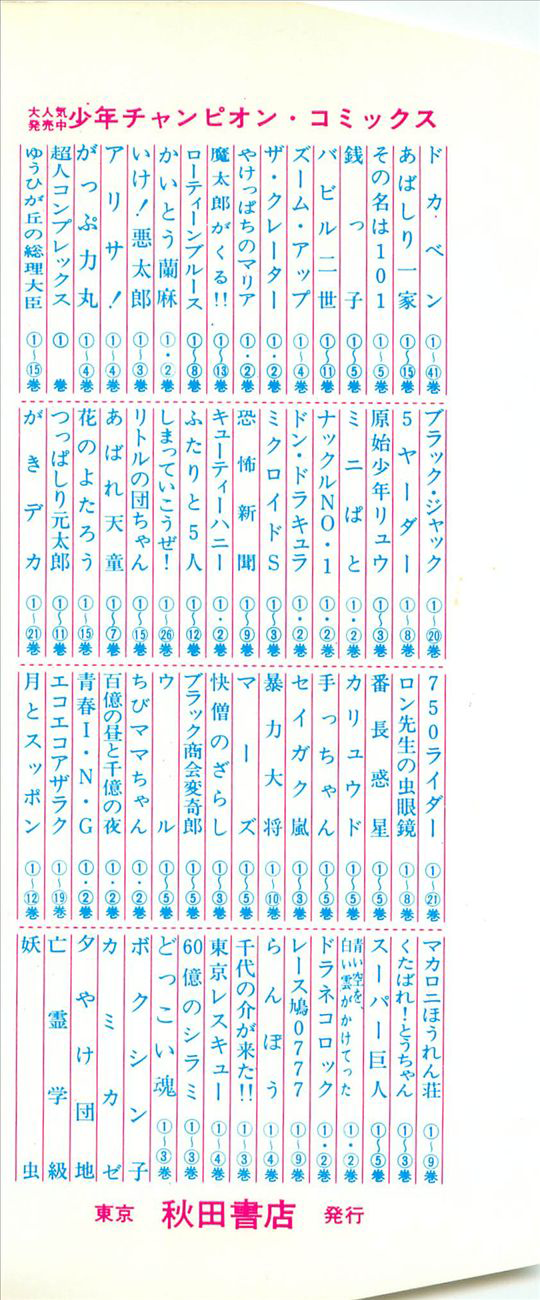 大人気発売中 少年チャンピオン・コミックス
ドカベン ①〜㊶巻
あばしり一家 ①〜⑮巻
その名は101 ①〜⑤巻
銭っ子 ①〜⑤巻
バビル二世 ①〜⑪巻
ズーム・アップ ①〜④巻
ザ・クレーター ①・②巻
やけっぱちのマリア ①・②巻
魔太郎がくる!! ①〜⑬巻
ローティーンブルース ①〜⑧巻
かいとう蘭麻 ①・②巻
いけ!悪太郎 ①〜③巻
アリサ! ①〜④巻
がっぷ力丸 ①〜④巻
超人コンプレックス ① 巻
ゆうひが丘の総理大臣 ①〜⑮巻
ブラック・ジャック ①〜⑳巻
5ヤーダー ①〜⑧巻
原始少年リュウ ①〜③巻
ミニぱと ①・②巻
ナックルNO・1 ①・②巻
ドン・ドラキュラ ①・②巻
ミクロイドS ①〜③巻
恐怖新聞 ①〜⑨巻
キューティーハニー ①・②巻
ふたりと5人 ①〜⑫巻
しまっていこうぜ! ①〜㉖巻
リトルの団ちゃん ①〜⑮巻
あばれ天童 ①〜⑦巻
花のよたろう ①〜⑮巻
つっぱしり元太郎 ①〜⑪巻
がきデカ ①〜㉑巻
750ライダー ①〜㉑巻
ロン先生の虫眼鏡 ①〜⑧巻
番長惑星 ①〜⑤巻
カリュウド ①〜⑤巻
手っちゃん ①〜⑤巻
セイガク嵐 ①〜③巻
暴力大将 ①〜⑩巻
マーズ ①〜⑤巻
快僧のざらし ①〜③巻
ブラック商会変奇郎 ①〜⑤巻
ウル ①〜⑤巻
ちびママちゃん ①・②巻
百億の昼と千億の夜 ①・②巻
青春I・N・G ①・②巻
エコエコアザラク ①〜⑲巻
月とスッポン ①〜⑫巻
マカロニほうれん荘 ①〜⑨巻
くたばれ!とうちゃん ①〜③巻
スーパー巨人 ①〜⑤巻
青い空を、白い雲がかけてった ①・②巻
ドラネコロック ①・②巻
レース鳩0777 ①〜⑨巻
らんぽう ①〜④巻
千代の介が来た!! ①〜③巻
東京レスキュー ①〜④巻
60億のシラミ ①〜③巻
どっこい魂 ①〜③巻
ボクシン子
カミカゼ
夕やけ団地
亡霊学級
妖虫
東京 秋田書店 発行